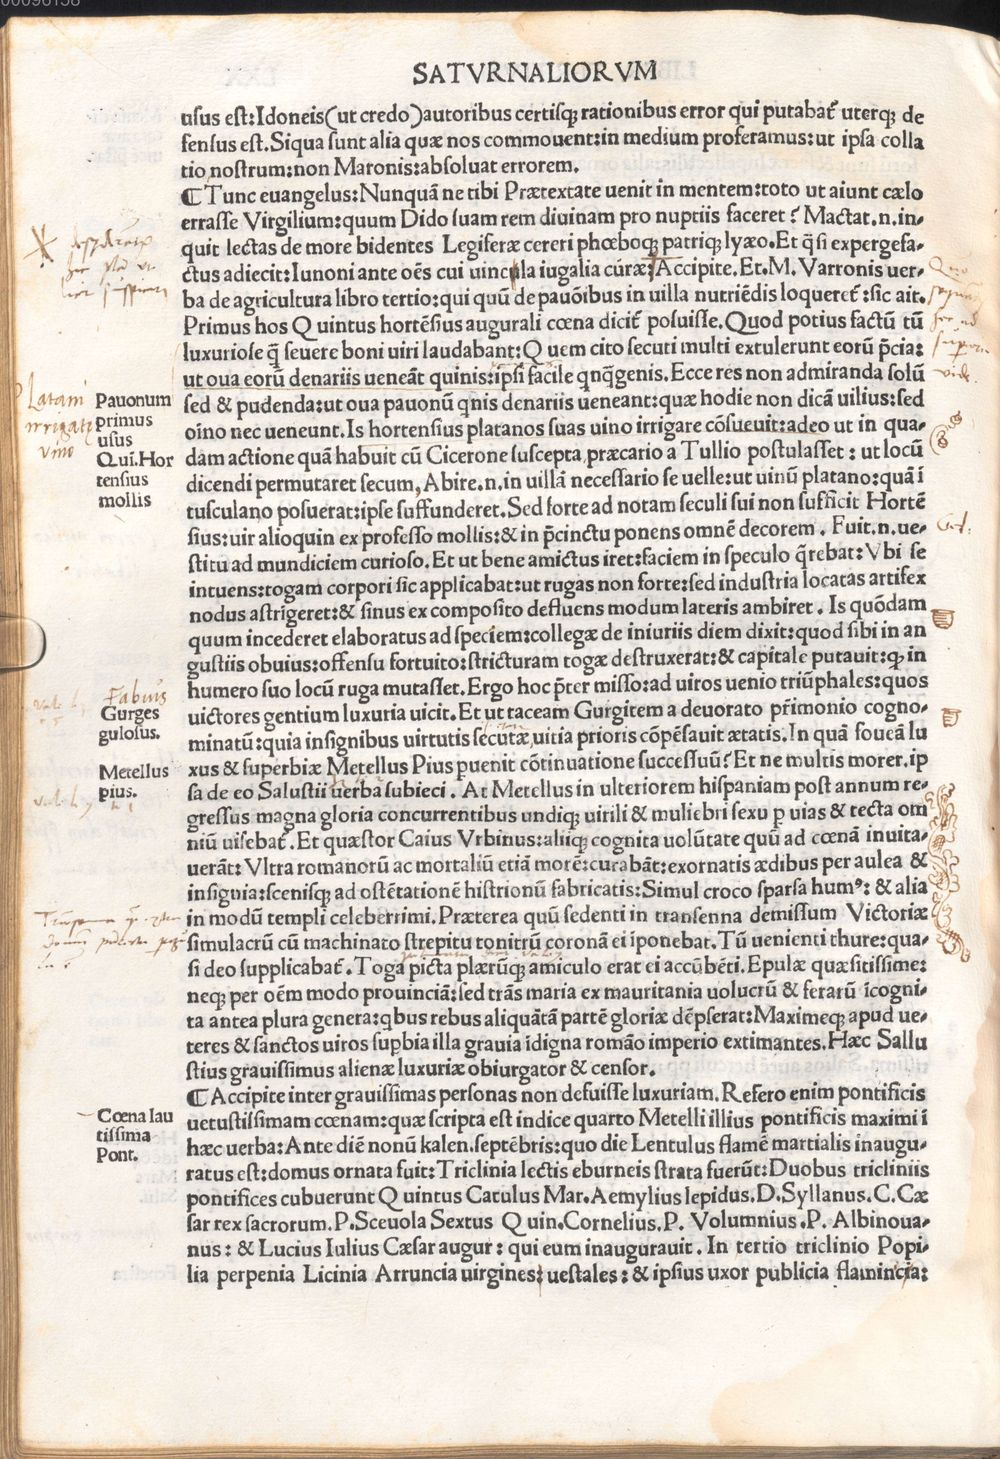 SATVRNALIORVM
usus est:Idoneis(ut credo)autoribus certisq; rationibus error qui putabat᷑ uterq; de
sensus est.Siqua sunt alia quæ nos commouent:in medium proferamus:ut ipsa colla
tio nostrum:non Maronis:absoluat errorem.
¶Tunc euangelus:Nunquā ne tibi Prætextate uenit in mentem:toto ut aiunt cælo
errasse Virgilium:quum Dido suam rem diuinam pro nuptiis faceret? Mactat.n.in-
quit lectas de more bidentes Legiferæ cereri phœboq; patriq; lyæo.Et q̄si expergefa-
ctus adiecit:Iunoni ante oēs cui uincula iugalia curæ:Accipite.Et.M.Varronis uer-
ba de agricultura libro tertio:qui quū de pauōibus in uilla nutriēdis loqueret᷑:sic ait.
Primus hos Quintus hortēsius augurali cœna dicit᷑ posuisse.Quod potius factū tū
luxuriose q̄ seuere boni uiri laudabant:Quem cito secuti multi extulerunt eorū p̄cia:
ut oua eorū denariis ueneāt quinis:ipsi facile qnqgenis.Ecce res non admiranda solū
sed & pudenda:ut oua pauonū qnis denariis ueneant:quæ hodie non dicā uilius:sed
oīno nec ueneunt.Is hortensius platanos suas uino irrigare cōsueuit:adeo ut in qua-
dam actione quā habuit cū Cicerone suscepta,præcario a Tullio postulasset:ut locū
dicendi permutaret secum,Abire.n.in uillā necessario se uelle:ut uinū platano:quā ī
tusculano posuerat:ipse suffunderet.Sed forte ad notam seculi sui non sufficit Hortē
sius:uir alioquin ex professo mollis:& in p̄cinctu ponens omnē decorem. Fuit.n.ue-
stitu ad mundiciem curioso.Et ut bene amictus iret:faciem in speculo q̄rebat:Vbi se
intuens:togam corpori sic applicabat:ut rugas non forte:sed industria locatas artifex
nodus astrīgeret:& sinus ex composito defluens modum lateris ambiret. Is quōdam
quum incederet elaboratus ad speciem:collegæ de iniuriis diem dixit:quod sibi in an
gustiis obuius:offensu fortuito:stricturam togæ destruxerat:& capitale putauit:q; in
humero suo locū ruga mutasset.Ergo hoc p̄ter misso:ad uiros uenio triūphales:quos
uictores gentium luxuria uicit.Et ut taceam Gurgitem a deuorato pr̄imonio cogno-
minatū:quia insignibus uirtutis secutæ,uitia prioris cōpēsauit ætatis.In quā foueā lu
xus & superbiæ Metellus Pius puenit cōtinuatione successuū?Et ne multis morer.ip
sa de eo Salustii uerba subieci. At Metellus in ulteriorem hispaniam post annum re-
gressus magna gloria concurrentibus undiq; uirili & muliebri sexu p uias & tecta om
niū uisebat᷑.Et quæstor Caius Vrbinus:aliiq; cognita uolūtate quū ad cœnā inuita-
uerāt:Vltra romanorū ac mortaliū etiā morē:curabāt:exornatis ædibus per aulea &
insignia:scenisq; ad ostētationē histrionū fabricatis:Simul croco sparsa humꝰ: & alia
in modū templi celeberrimi.Præterea quū sedenti in transenna demissum Victoriæ
simulacrū cū machinato strepitu tonitrū coronā ei īponebat.Tū uenienti thure:qua-
si deo supplicabat᷑.Toga picta plærūq; amiculo erat ei accūbēti.Epulæ quæsitissime:
neq; per oēm modo prouinciā:sed trās maria ex mauritania uolucrū & ferarū īcogni-
ta antea plura genera:qbus rebus aliquātā partē gloriæ dēpserat:Maximeq; apud ue-
teres & sanctos uiros supbia illa grauia īdigna romāo imperio extimantes.Hæc Sallu
stius grauissimus alienæ luxuriæ obiurgator & censor.
¶Accipite inter grauissimas personas non defuisse luxuriam.Refero enim pontificis
uetustissimam cœnam:quæ scripta est indice quarto Metelli illius pontificis maximi ī
hæc uerba:Ante diē nonū kalen.septēbris:quo die Lentulus flamē martialis inaugu-
ratus est:domus ornata fuit:Triclinia lectis eburneis strata fuerūt:Duobus tricliniis
pontifices cubuerunt Quintus Catulus Mar.Aemylius lepidus.D.Syllanus.C.Cæ
sar rex sacrorum.P.Sceuola Sextus Quin.Cornelius.P. Volumnius.P. Albinoua-
nus: & Lucius Iulius Cæsar augur: qui eum inaugurauit. In tertio triclinio Popi-
lia perpenia Licinia Arruncia uirgines: uestales: & ipsius uxor publicia flamincia:
Platani
irrigati
vino
Pauonum
primus
usus
Quī.Hor
tensius
mollis
Fabius
Gurges
gulosus.
Metellus
pius.
Cœna lau
tissima
Pont.